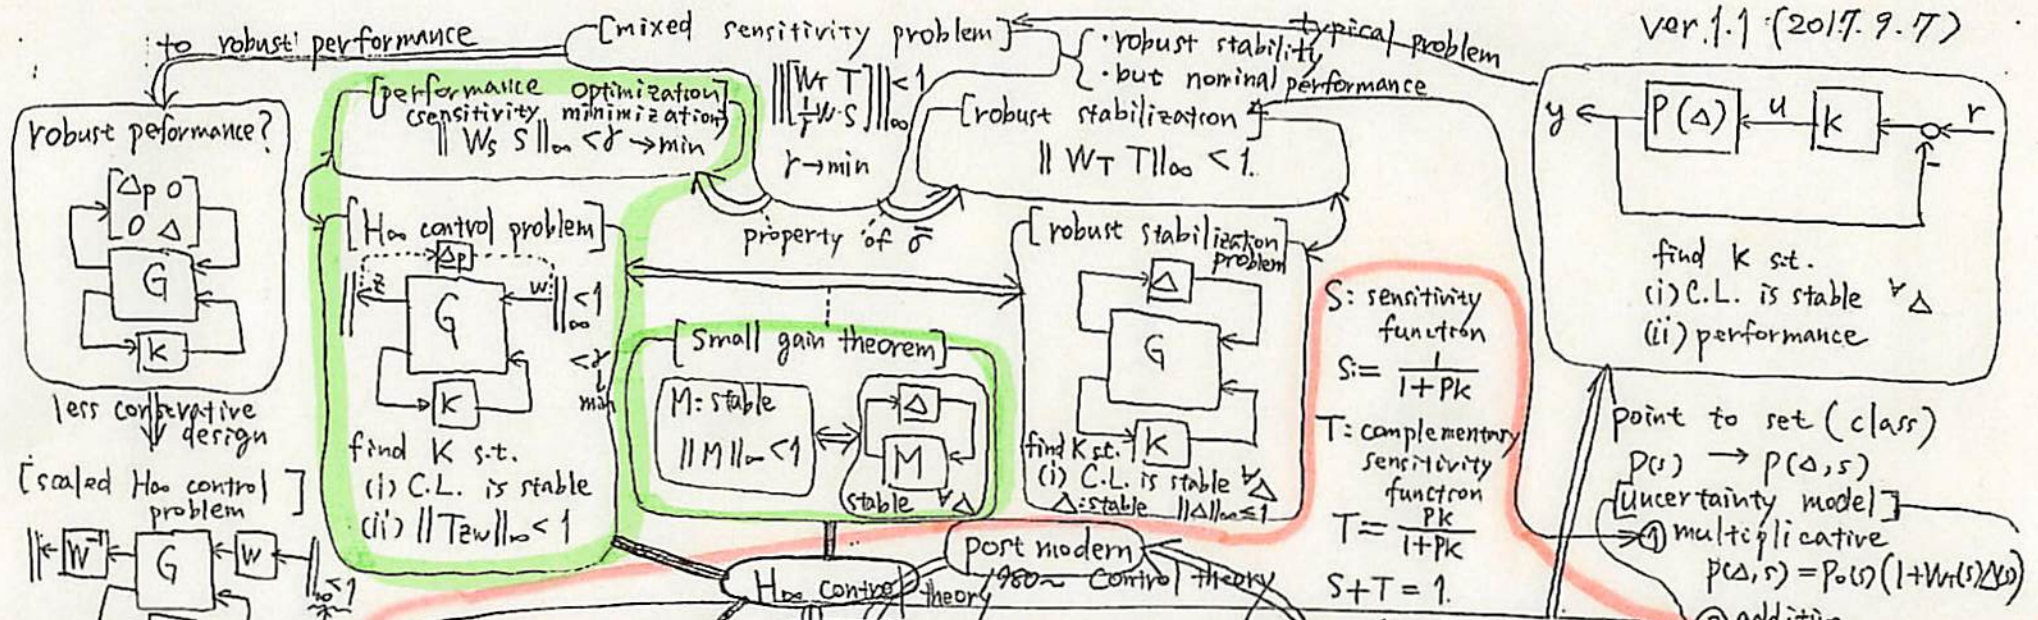 ver.1.1 (2017.9.7)
to robust performance
[mixed sensitivity problem]
‖[W_T T
1/γ W·S]‖∞ < 1
γ → min
・robust stability
・but nominal performance
typical problem
robust peformance?
Δp 0
0 Δ
G
K
less conservative
design
[scaled H∞ control
problem]
W⁻¹
G
W
‖∞ ≤ 1
[performance optimization]
(sensitivity minimization)
‖ Ws S ‖∞ < γ → min
[H∞ control problem]
Δp
z
w
G
K
‖∞ < 1
< γ
↓
min
find K s.t.
(i) C.L. is stable
(ii) ‖Tzw‖∞ < 1
property of σ̄
[Small gain theorem]
M: stable
‖M‖∞ < 1
⇔
Δ
M
stable ∀Δ
[robust stabilization]
‖ W_T T‖∞ < 1.
[robust stabilization
problem]
Δ
G
K
find K s.t.
(i) C.L. is stable ∀Δ
Δ: stable ‖Δ‖∞ ≤ 1
S: sensitivity
function
S := 1/(1+PK)
T: complementary
sensitivity
function
T := PK/(1+PK)
S+T = 1.
y
P(Δ)
u
K
r
-
find K s.t.
(i) C.L. is stable ∀Δ
(ii) performance
point to set (class)
P(s) → P(Δ,s)
[Uncertainty model]
① multiplicative
P(Δ,s) = P₀(s)(1+W_T(s)Δ(s))
② additive
H∞ control theory
post modern
1980~ control theory